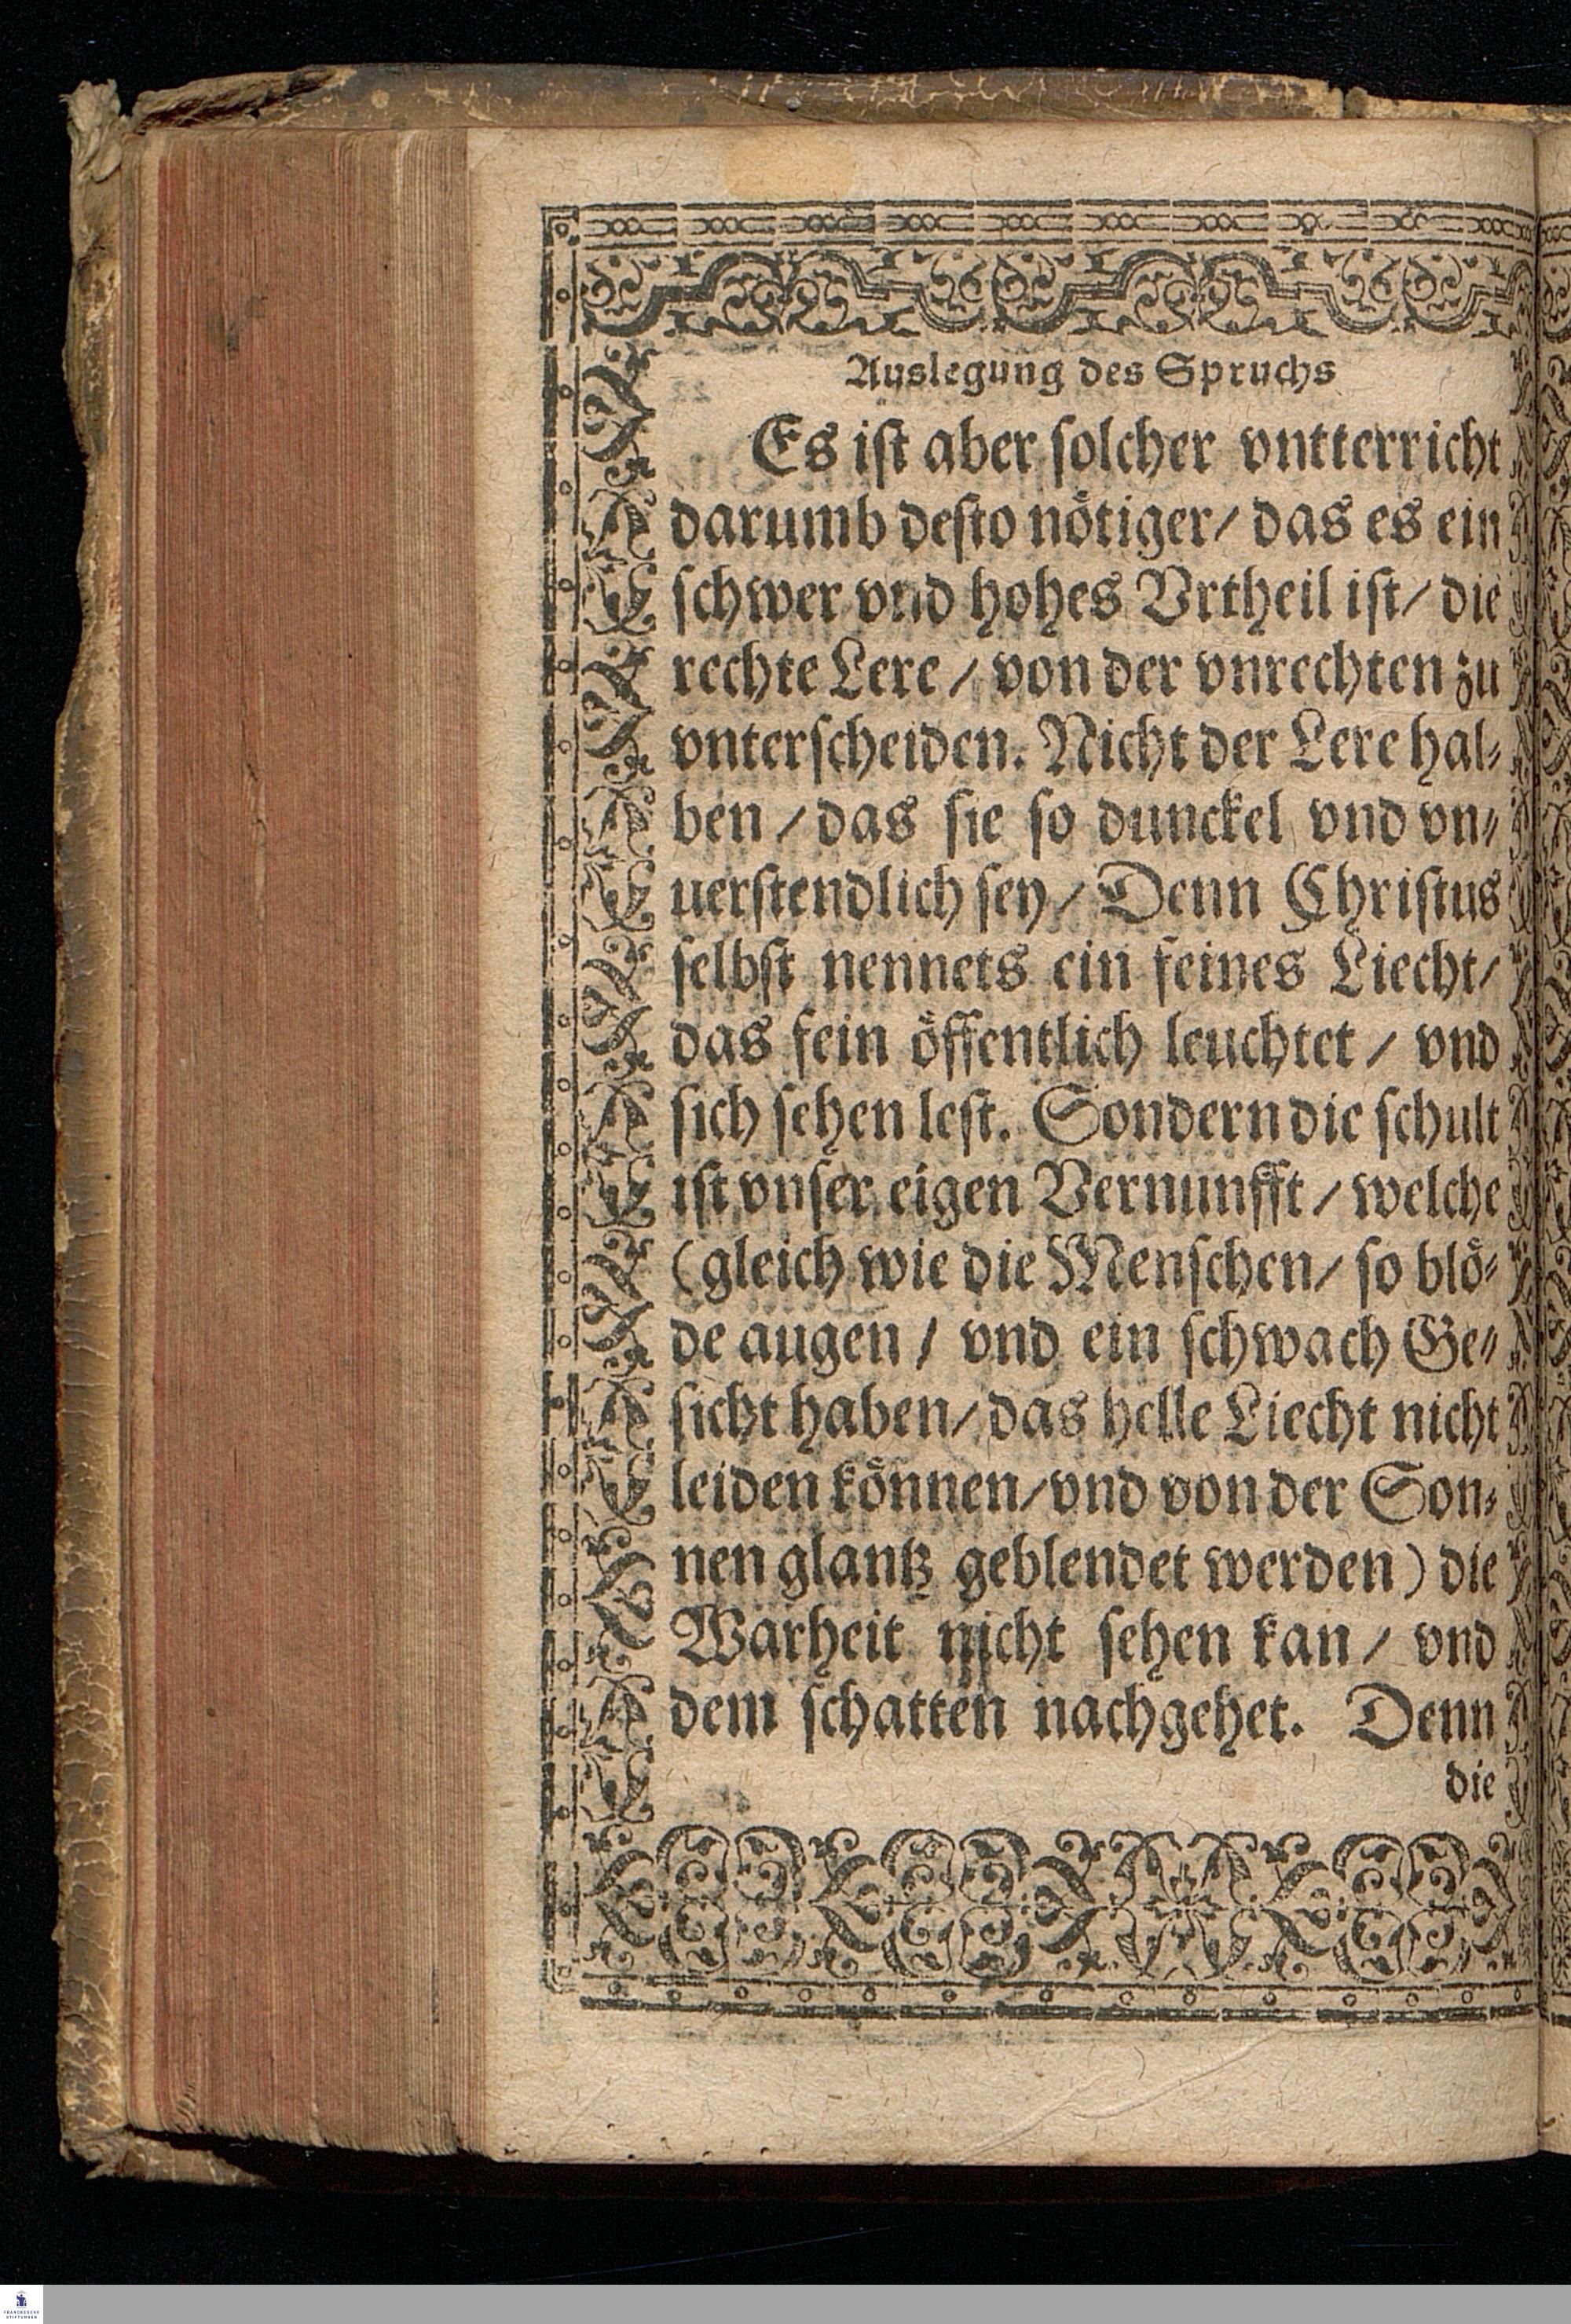 Auslegung des Spruchs
Es iſt aber ſolcher vntterricht
darumb deſto nötiger/ das es ein
ſchwer vnd hohes Vrtheil iſt/ die
rechte Lere / von der vnrechten zu
vnterſcheiden. Nicht der Lere hal⸗
ben / das ſie ſo dunckel vnd vn⸗
uerſtendlich ſey / Denn Chriſtus
ſelbſt nennets ein feines Liecht/
das fein öffentlich leuchtet / vnd
ſich ſehen leſt. Sondern die ſchult
iſt vnſer eigen Vernunfft / welche
(gleich wie die Menſchen/ ſo blö⸗
de augen / vnd ein ſchwach Ge⸗
ſicht haben/ das helle Liecht nicht
leiden können/vnd von der Son⸗
nen glantz geblendet werden) die
Warheit nicht ſehen kan / vnd
dem ſchatten nachgehet. Denn
die
FRANCKESCHE
STIFTUNGEN